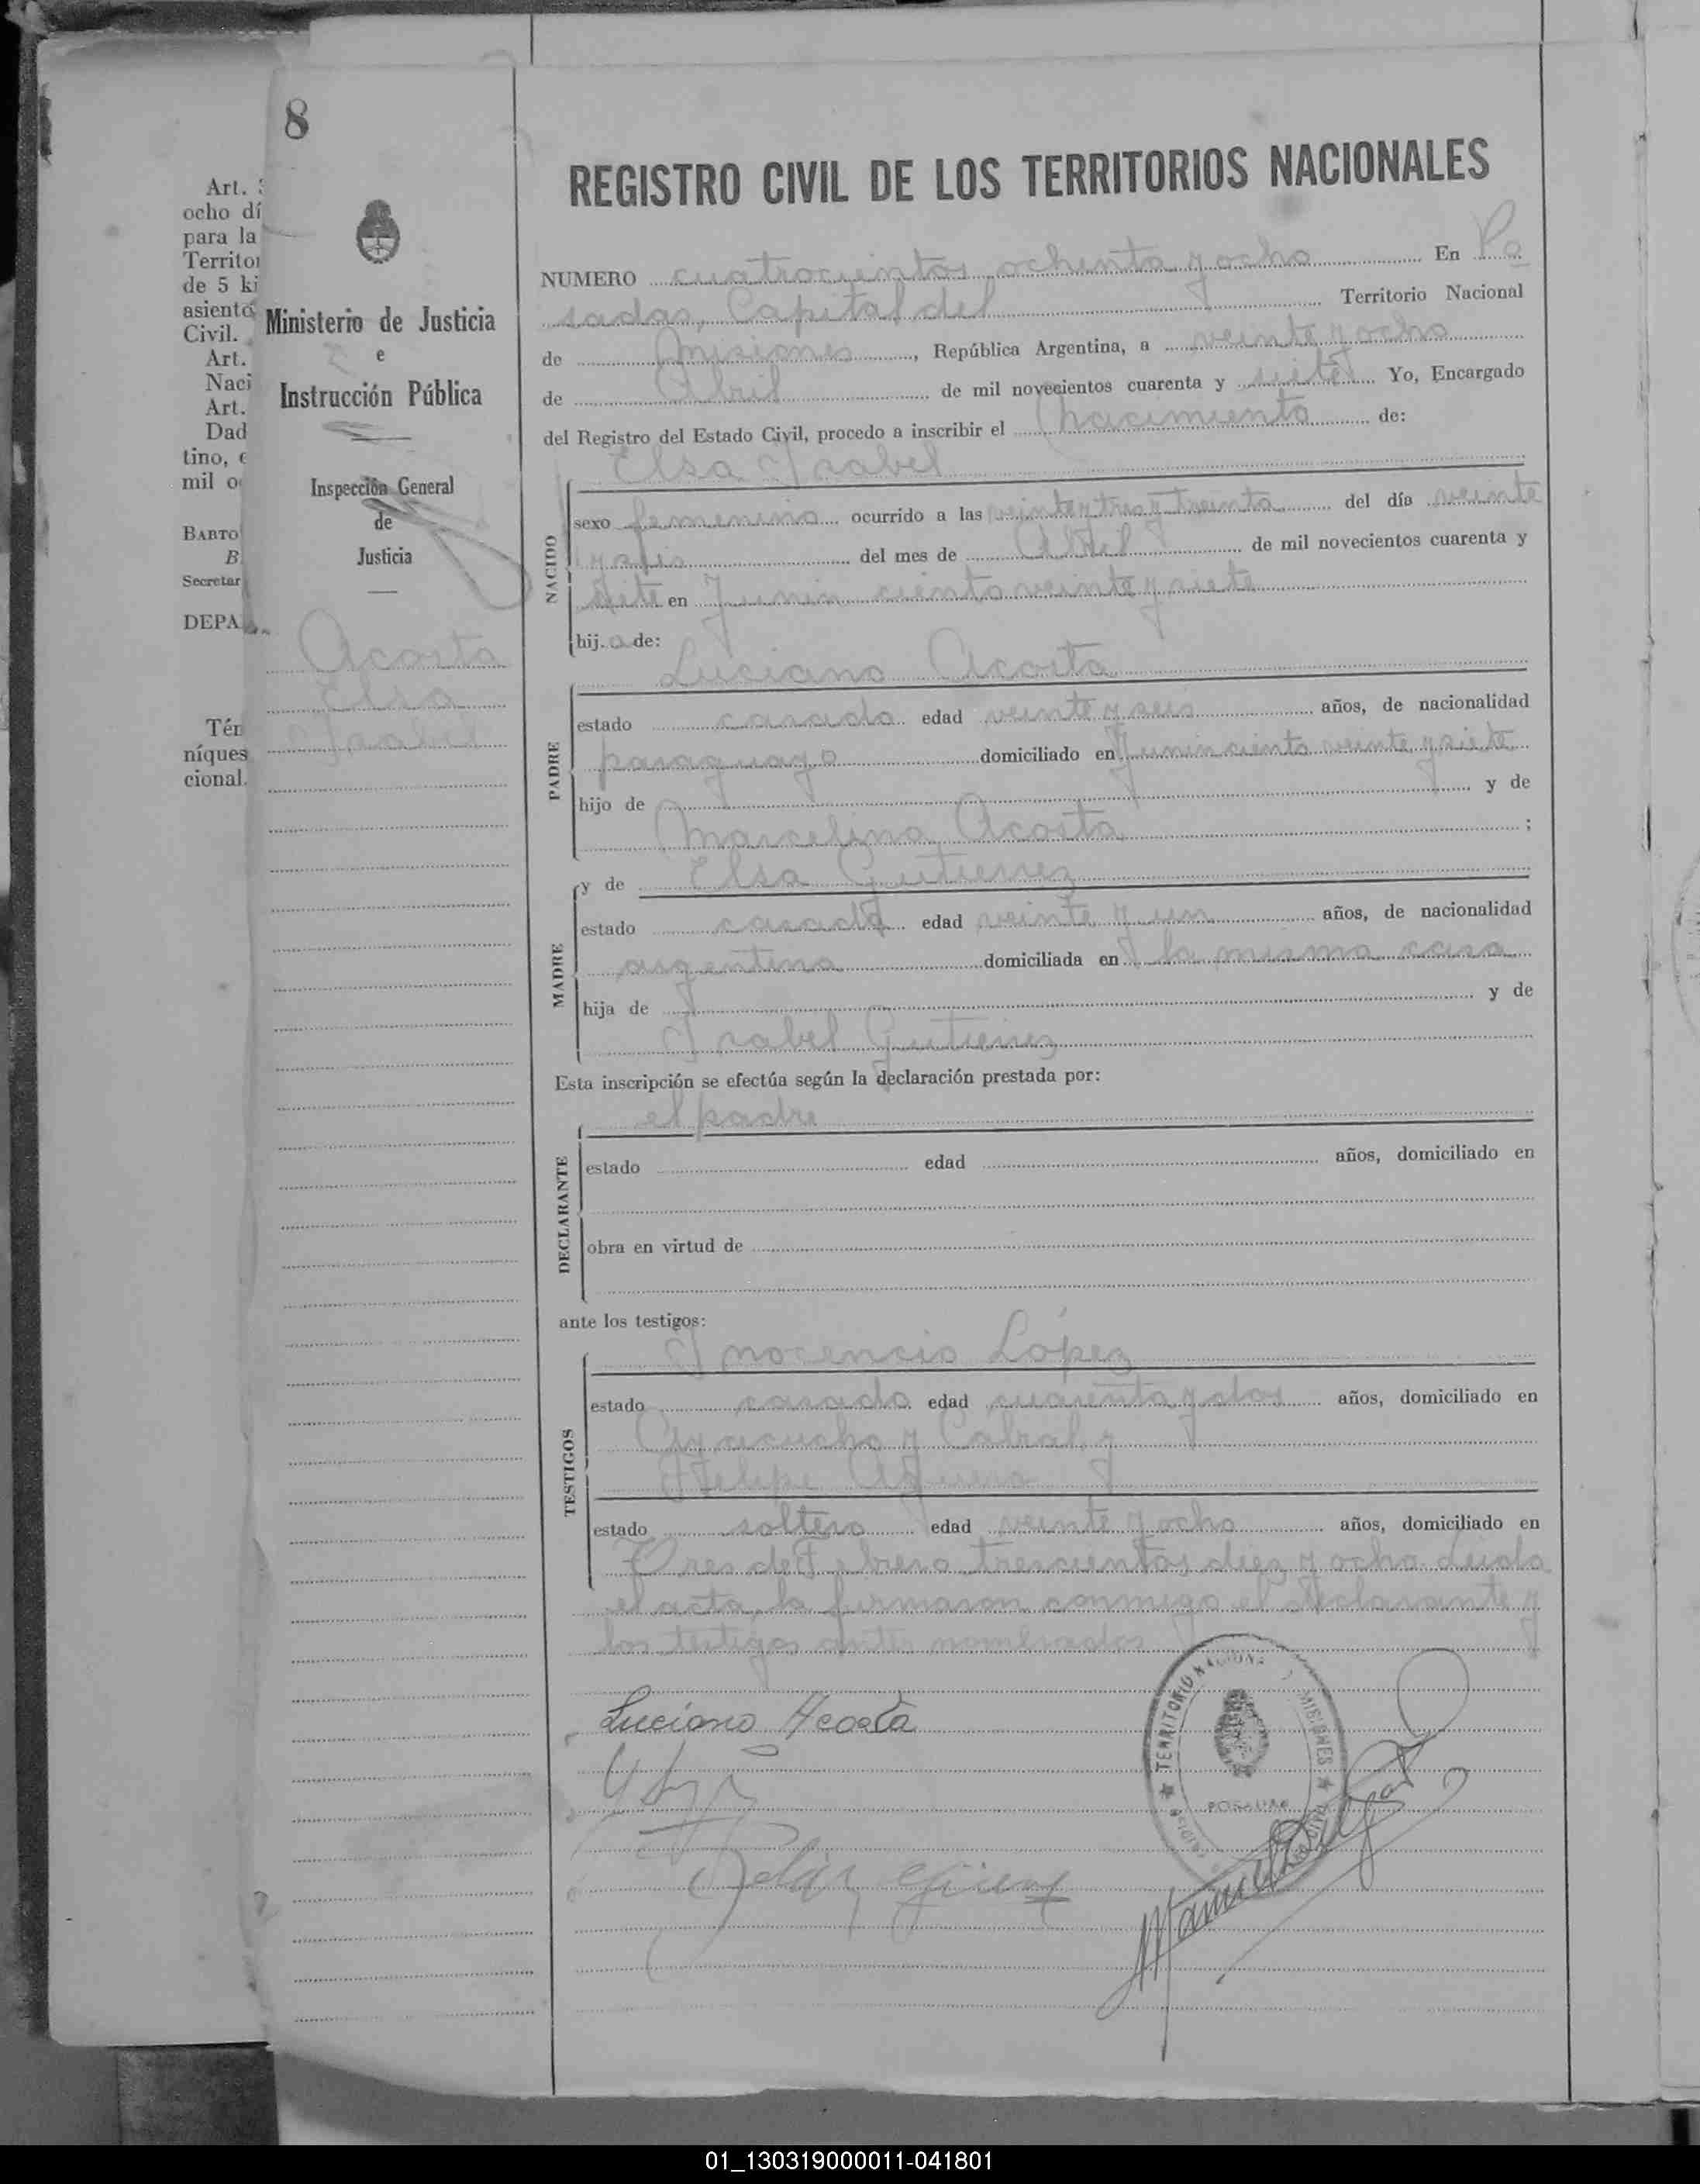 8
REGISTRO CIVIL DE LOS TERRITORIOS NACIONALES
Art.
ocho dí
para la
Territor
de 5 ki
asiento
Civil.
Art.
Naci
Art.
Dad
tino, e
mil o
BARTO
B.
Secretar
DEPA
Tén
níques
cional.
Ministerio de Justicia
e
Instrucción Pública
Inspección General
de
Justicia
Acosta
Elsa
Isabel
NUMERO cuatrocientos ochenta y ocho En Po
sadas, Capital del Territorio Nacional
de Misiones, República Argentina, a veinte y ocho
de Abril de mil novecientos cuarenta y siete Yo, Encargado
del Registro del Estado Civil, procedo a inscribir el nacimiento de:
Elsa Isabel
NACIDO
sexo femenino ocurrido a las veinte y tres y treinta del día veinte
del mes de Abril de mil novecientos cuarenta y
siete en Junin ciento veinte y siete
hija de:
Luciano Acosta
PADRE
estado casado edad veinte y seis años, de nacionalidad
paraguayo domiciliado en Junin ciento veinte y siete
hijo de y de
Marcelina Acosta ;
MADRE
y de Elsa Gutierrez
estado casada edad veinte y un años, de nacionalidad
argentina domiciliada en la misma casa
hija de y de
Isabel Gutierrez
Esta inscripción se efectúa según la declaración prestada por:
el padre
DECLARANTE
estado edad años, domiciliado en
obra en virtud de
ante los testigos:
Inocencio López
TESTIGOS
estado casado edad cuarenta y dos años, domiciliado en
Ayacucho y Cabral y
Felipe
estado soltero edad veinte y ocho años, domiciliado en
Tres de Febrero trescientos diez y ocho. Leida
el acta, la firmaron conmigo el declarante y
los testigos antes nombrados
Luciano Acosta
TERRITORIO NACIONAL MISIONES
POSADAS
01_130319000011-041801